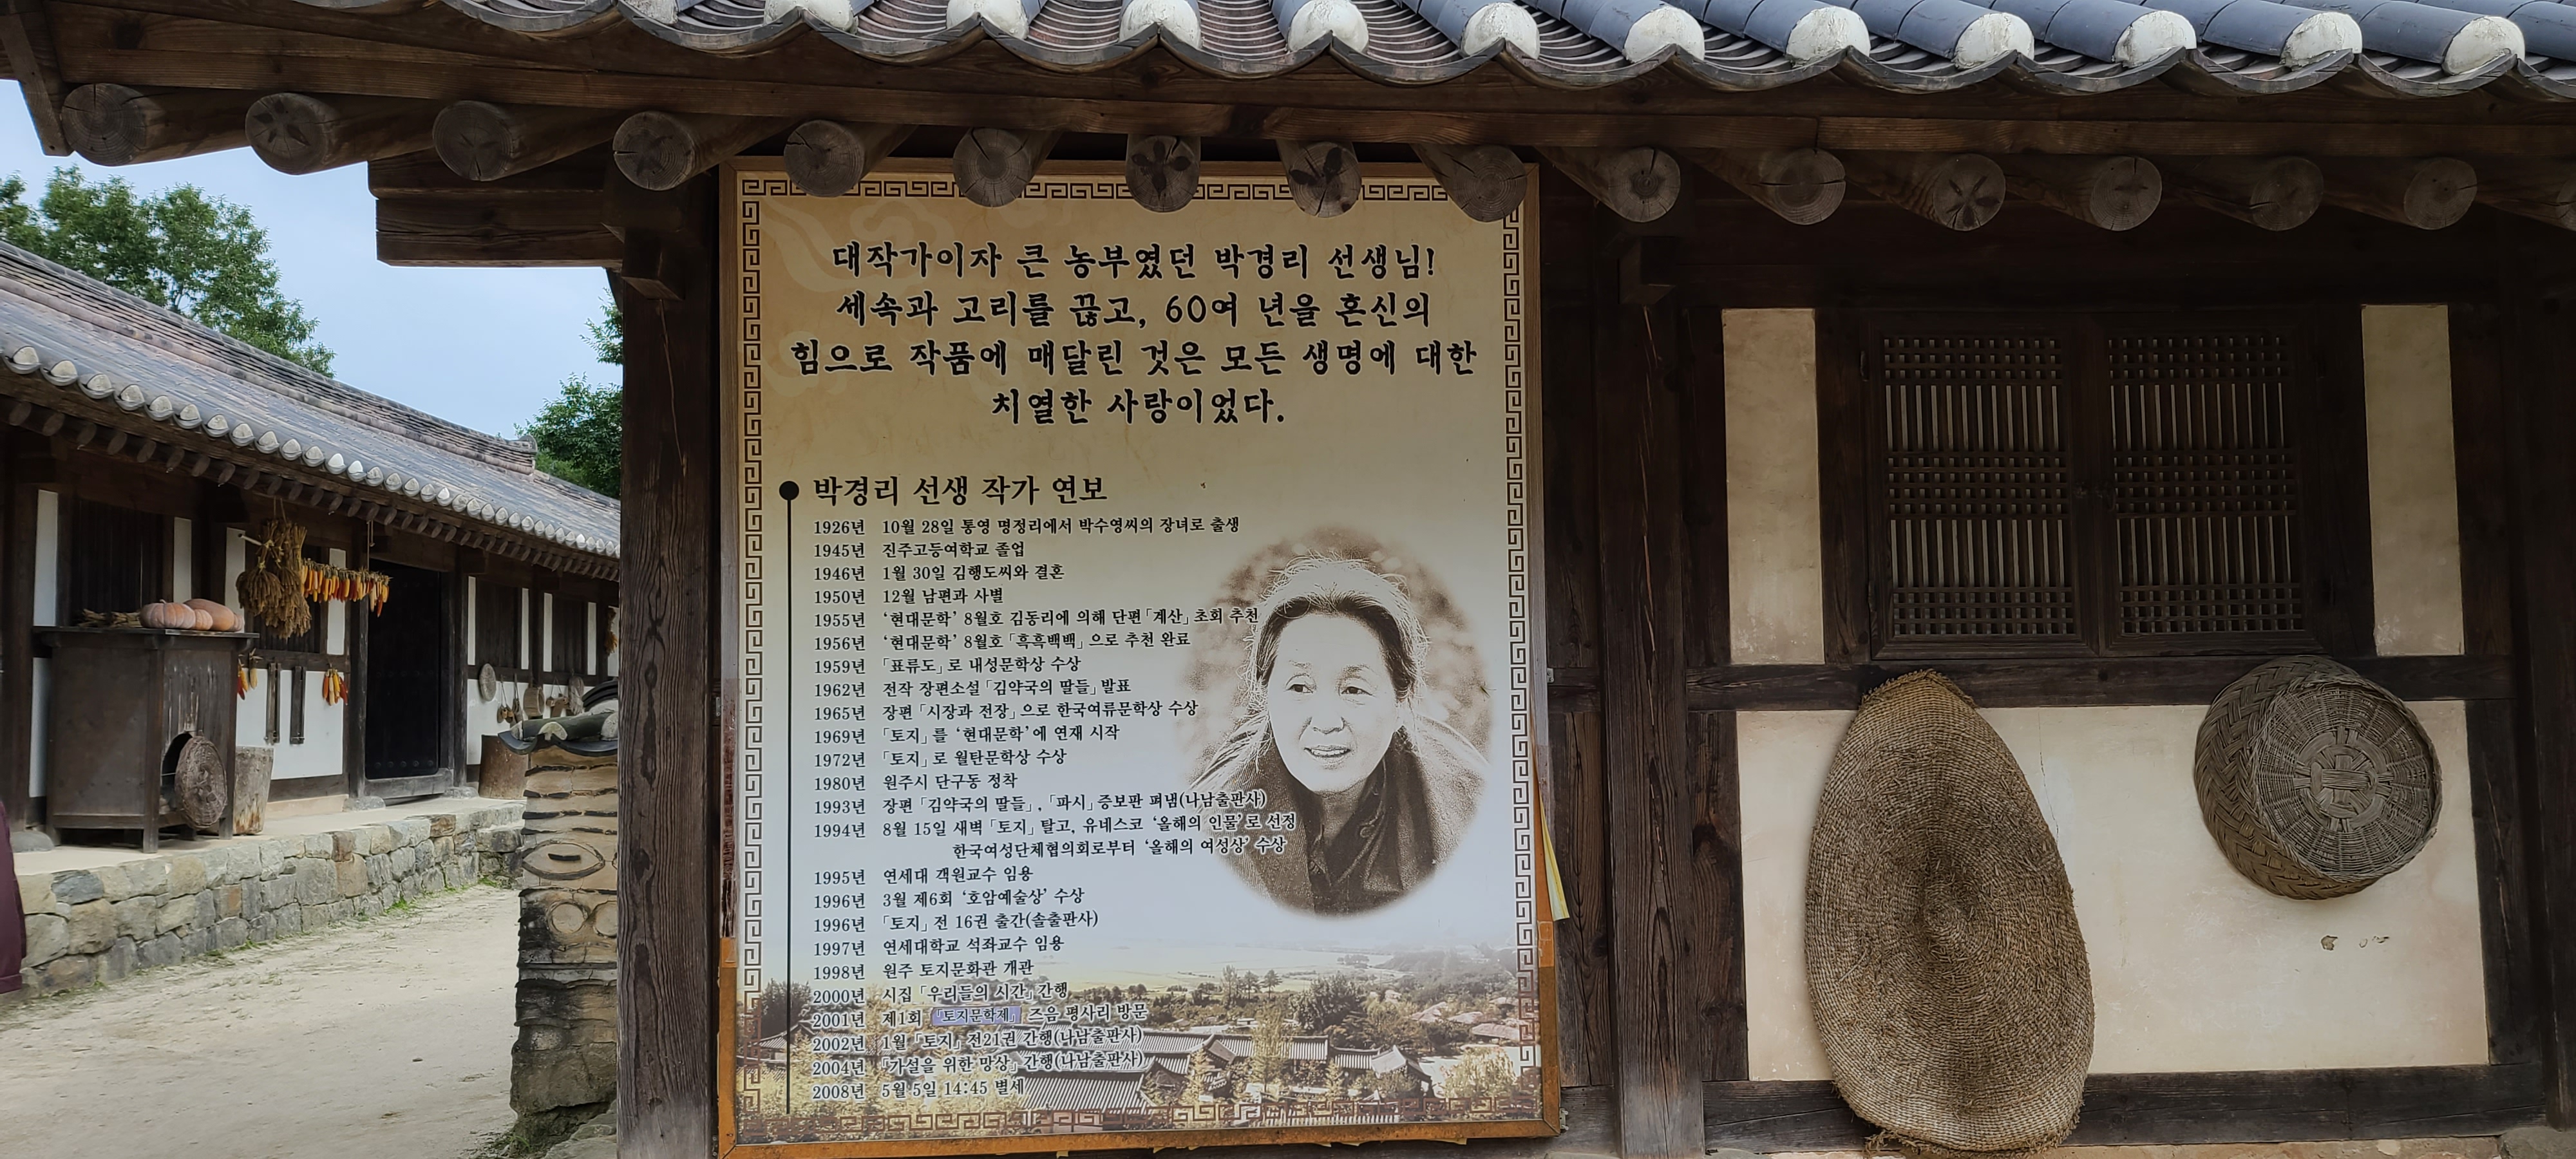 대작가이자 큰 농부였던 박경리 선생님!
세속과 고리를 끊고, 60여 년을 혼신의
힘으로 작품에 매달린 것은 모든 생명에 대한
치열한 사랑이었다.
박경리 선생 작가 연보
1926년 10월 28일 통영 명정리에서 박수영씨의 장녀로 출생
1945년 진주고등여학교 졸업
1946년 1월 30일 김행도씨와 결혼
1950년 12월 남편과 사별
1955년 ‘현대문학’ 8월호 김동리에 의해 단편「계산」초회 추천
1956년 ‘현대문학’ 8월호「흑흑백백」으로 추천 완료
1959년 「표류도」로 내성문학상 수상
1962년 전작 장편소설「김약국의 딸들」발표
1965년 장편「시장과 전장」으로 한국여류문학상 수상
1969년 「토지」를 ‘현대문학’에 연재 시작
1972년 「토지」로 월탄문학상 수상
1980년 원주시 단구동 정착
1993년 장편「김약국의 딸들」,「파시」증보판 펴냄(나남출판사)
1994년 8월 15일 새벽「토지」탈고, 유네스코 ‘올해의 인물’로 선정
한국여성단체협의회로부터 ‘올해의 여성상’ 수상
1995년 연세대 객원교수 임용
1996년 3월 제6회 ‘호암예술상’ 수상
1996년 「토지」전 16권 출간(솔출판사)
1997년 연세대학교 석좌교수 임용
1998년 원주 토지문화관 개관
2000년 시집「우리들의 시간」간행
2001년 제1회 「토지문학제」 즈음 평사리 방문
2002년 1월「토지」전21권 간행(나남출판사)
2004년 「가설을 위한 망상」간행(나남출판사)
2008년 5월 5일 14:45 별세